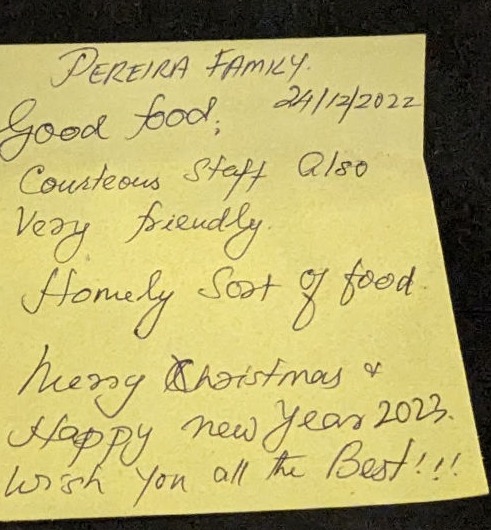 PEREIRA FAMILY.
24/12/2022
Good food;
Courteous Staff Also
Very friendly.
Homely Sort of food.
Merry Christmas &
Happy new Year 2023.
Wish You all the Best!!!